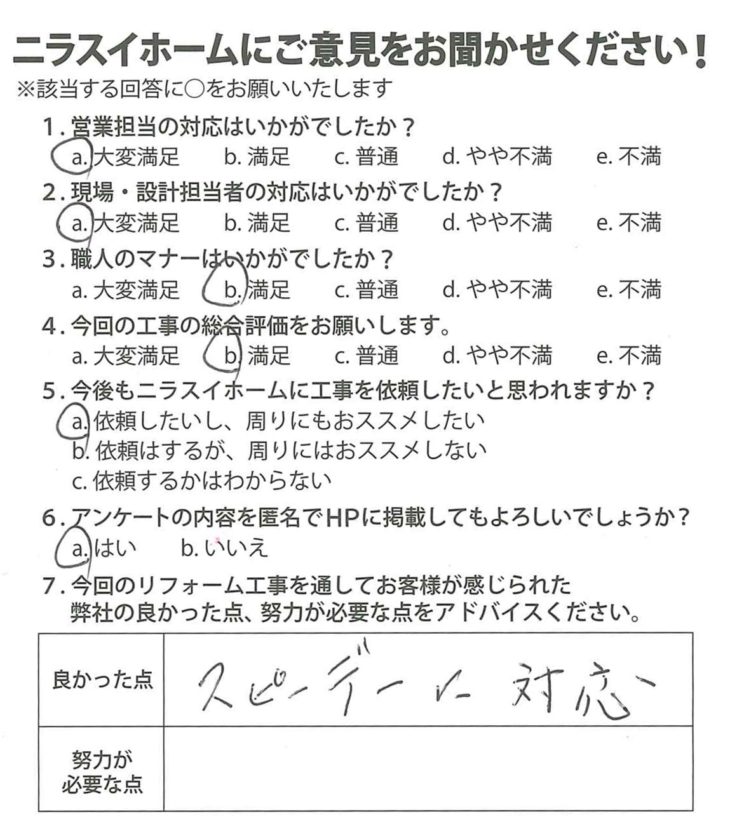 ニラスイホームにご意見をお聞かせください！
※該当する回答に○をお願いいたします
1．営業担当の対応はいかがでしたか？
a. 大変満足　b. 満足　c. 普通　d. やや不満　e. 不満
2．現場・設計担当者の対応はいかがでしたか？
a. 大変満足　b. 満足　c. 普通　d. やや不満　e. 不満
3．職人のマナーはいかがでしたか？
a. 大変満足　b. 満足　c. 普通　d. やや不満　e. 不満
4．今回の工事の総合評価をお願いします。
a. 大変満足　b. 満足　c. 普通　d. やや不満　e. 不満
5．今後もニラスイホームに工事を依頼したいと思われますか？
a. 依頼したいし、周りにもおススメしたい
b. 依頼はするが、周りにはおススメしない
c. 依頼するかはわからない
6．アンケートの内容を匿名でHPに掲載してもよろしいでしょうか？
a. はい　b. いいえ
7．今回のリフォーム工事を通してお客様が感じられた
弊社の良かった点、努力が必要な点をアドバイスください。
良かった点　スピーデーに対応
努力が
必要な点